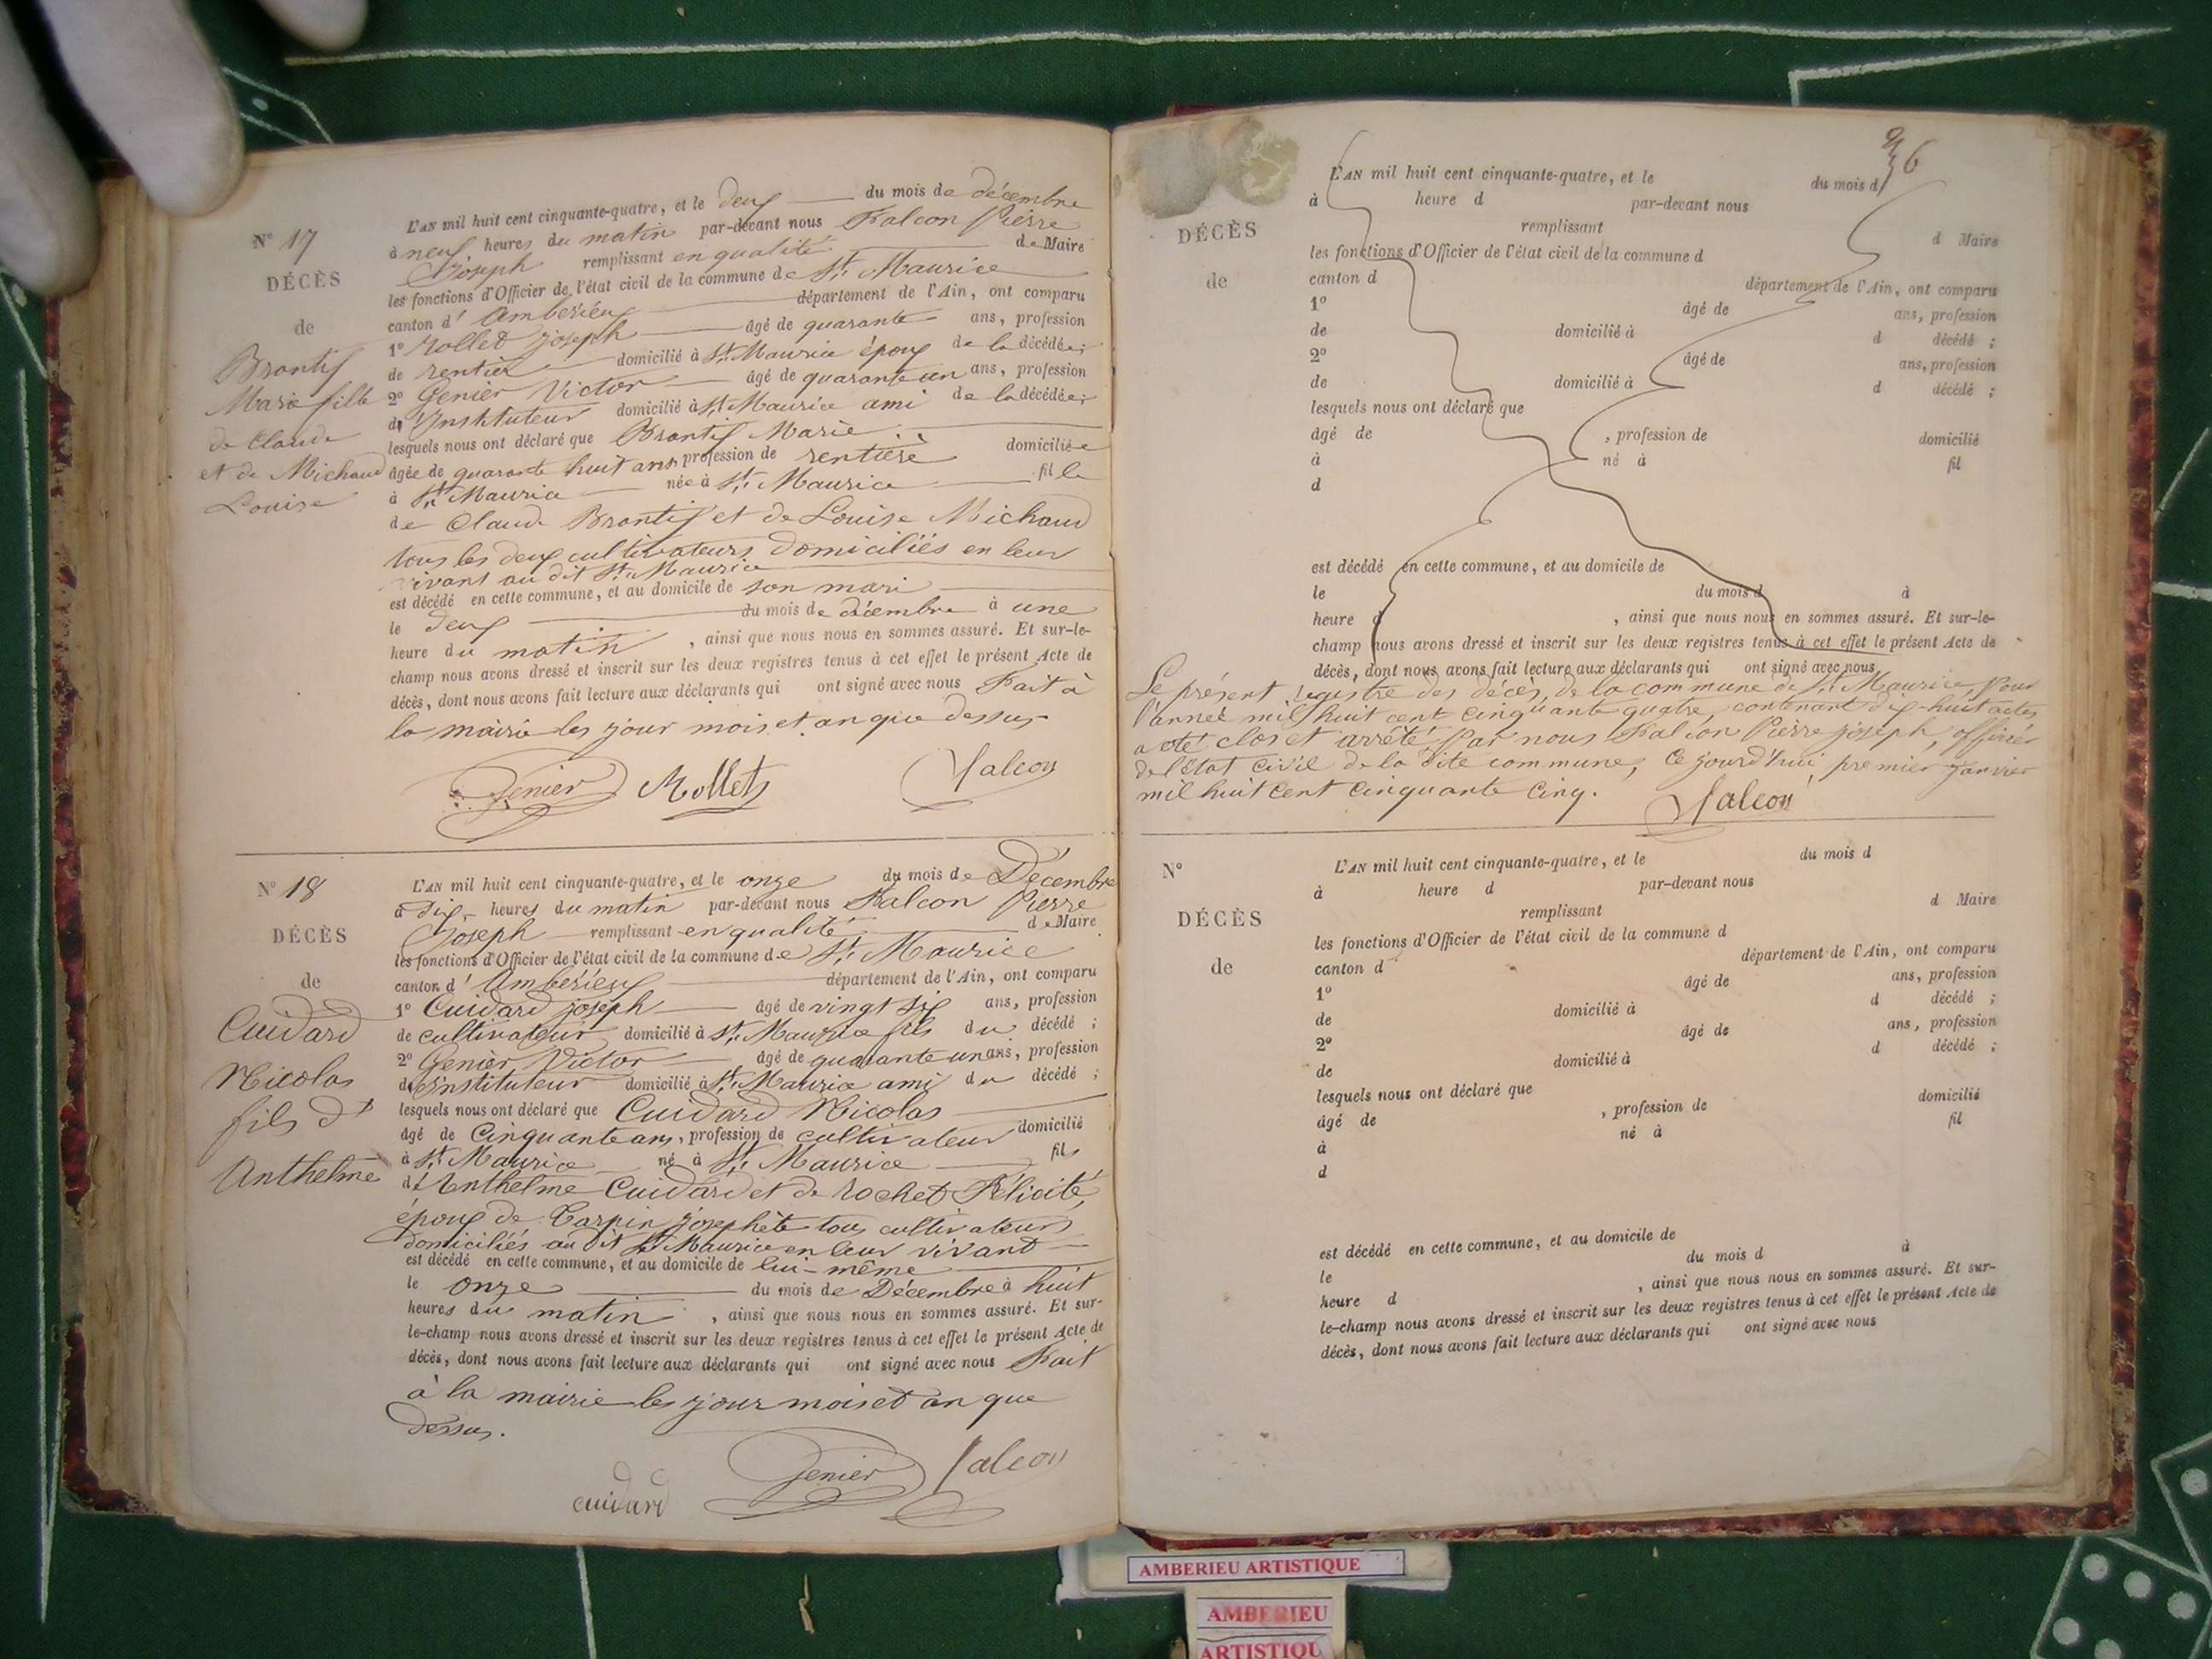 N° 17
DÉCÈS
de
Brontif
Marie fille
de Claude
et de Michaud
Louise
L'AN mil huit cent cinquante-quatre, et le deux du mois de décembre
à neuf heures du matin par-devant nous Falcon Pierre
Joseph remplissant en qualité de Maire
les fonctions d'Officier de l'état civil de la commune de St. Maurice
canton d' Ambérieux département de l'Ain, ont comparu
1° Rollet joseph âgé de quarante ans, profession
de rentier domicilié à St. Maurice époux de la décédée;
2° Genier Victor âgé de quarante un ans, profession
d'Instituteur domicilié à St. Maurice ami de la décédée;
lesquels nous ont déclaré que Brontif Marie
âgée de quarante huit ans profession de rentière domiciliée
à St. Maurice née à St. Maurice fille
de Claude Brontif et de Louise Michaud
tous les deux cultivateurs domiciliés en leur
vivant au dit St. Maurice
est décédé en cette commune, et au domicile de son mari
le deux du mois de décembre à une
heure du matin, ainsi que nous nous en sommes assuré. Et sur-le-
champ nous avons dressé et inscrit sur les deux registres tenus à cet effet le présent Acte de
décès, dont nous avons fait lecture aux déclarants qui ont signé avec nous Fait à
la mairie les jour mois et an que dessus
Genier Rollet Falcon
N° 18
DÉCÈS
de
Cuidard
Nicolas
fils d'
Anthelme
L'AN mil huit cent cinquante-quatre, et le onze du mois de Décembre
à dix heures du matin par-devant nous Falcon Pierre
Joseph remplissant en qualité de Maire
les fonctions d'Officier de l'état civil de la commune de St. Maurice
canton d' Ambérieux département de l'Ain, ont comparu
1° Cuidard joseph âgé de vingt six ans, profession
de cultivateur domicilié à St. Maurice fils du décédé;
2° Genier Victor âgé de quarante un ans, profession
d'Instituteur domicilié à St. Maurice ami du décédé;
lesquels nous ont déclaré que Cuidard Nicolas
âgé de Cinquante ans, profession de cultivateur domicilié
à St. Maurice né à St. Maurice fils
d'Anthelme Cuidard et de rochet Félicité,
époux de Carpin josephète tous cultivateurs
domiciliés au dit St Maurice en leur vivant
est décédé en cette commune, et au domicile de lui-même
le onze du mois de Décembre à huit
heures du matin, ainsi que nous nous en sommes assuré. Et sur-
le-champ nous avons dressé et inscrit sur les deux registres tenus à cet effet le présent Acte de
décès, dont nous avons fait lecture aux déclarants qui ont signé avec nous Fait
à la mairie les jour mois et an que
dessus.
cuidard Genier Falcon
36
DÉCÈS
de
L'AN mil huit cent cinquante-quatre, et le du mois d
à heure d par-devant nous
remplissant d Maire
les fonctions d'Officier de l'état civil de la commune d
canton d département de l'Ain, ont comparu
1° âgé de ans, profession
de domicilié à d décédé;
2° âgé de ans, profession
de domicilié à d décédé;
lesquels nous ont déclaré que
âgé de , profession de domicilié
à né à fil
d
est décédé en cette commune, et au domicile de
le du mois d à
heure d , ainsi que nous nous en sommes assuré. Et sur-le-
champ nous avons dressé et inscrit sur les deux registres tenus à cet effet le présent Acte de
décès, dont nous avons fait lecture aux déclarants qui ont signé avec nous
Le présent registre des décès, de la commune de St. Maurice, Pour
l'année mil huit cent Cinquante quatre, contenant dix-huit actes
a été clos et arrêté Par nous Falcon Pierre joseph, officier
de l'état civil de la dite commune, Ce jourd'hui premier janvier
mil huit Cent Cinquante Cinq. Falcon
N°
DÉCÈS
de
L'AN mil huit cent cinquante-quatre, et le du mois d
à heure d par-devant nous
remplissant d Maire
les fonctions d'Officier de l'état civil de la commune d
canton d département de l'Ain, ont comparu
1° âgé de ans, profession
de domicilié à d décédé;
2° âgé de ans, profession
de domicilié à d décédé;
lesquels nous ont déclaré que
âgé de , profession de domicilié
à né à fil
d
est décédé en cette commune, et au domicile de
le du mois d à
heure d , ainsi que nous nous en sommes assuré. Et sur-
le-champ nous avons dressé et inscrit sur les deux registres tenus à cet effet le présent Acte de
décès, dont nous avons fait lecture aux déclarants qui ont signé avec nous
AMBERIEU ARTISTIQUE
AMBERIEU
ARTISTIQU